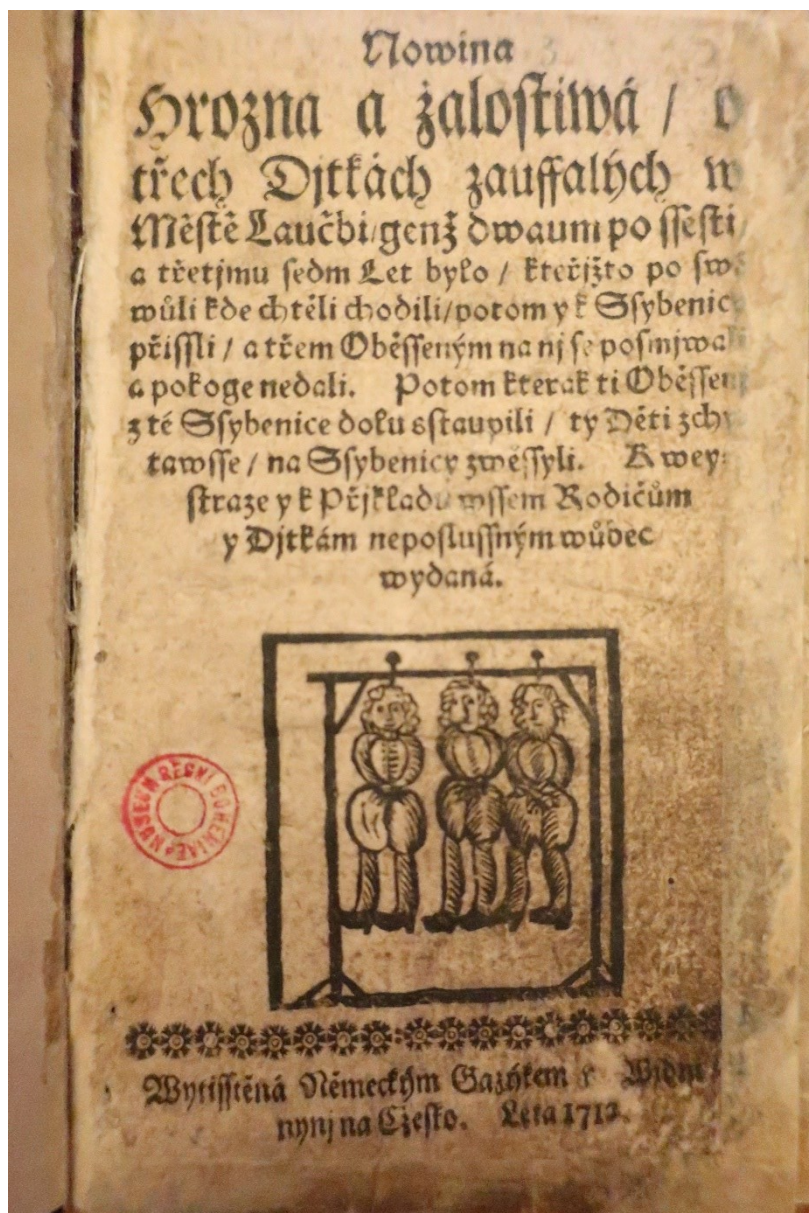 Nowina
Hrozna a žalostiwá / o
třech Djtkách zauffalých w
Městě Laučbi / genž dwaum po ssesti
a třetjmu sedm Let bylo / kteřjžto po swé
wůli kde chtěli chodili / potom y k Ssybenicy
přissli / a třem Oběsseným na nj se posmjwali
a pokoge nedali. Potom kterak ti Oběssenj
z té Ssybenice dolu sstaupili / ty Děti zchy
tawsse / na Ssybenicy zwěssyli. K wey-
straze y k Přjkladu wssem Rodičům
y Djtkám neposlussným wůbec
wydaná.
MUSEUM REGNI BOHEMIAE
Wytisstěná Německým Gazykem w Wjdni
nynj na Czesko. Léta 1712.